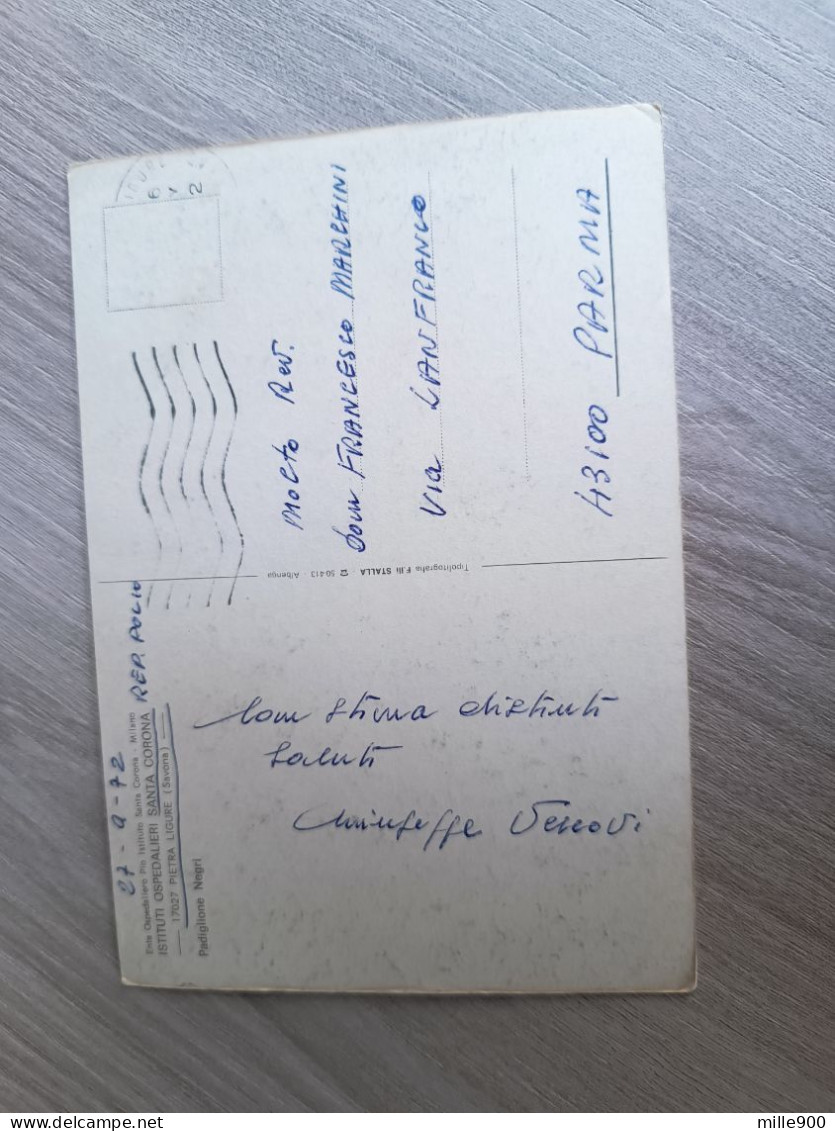 27-9-72
Ente Ospedaliero Pio Istituto Santa Corona - Milano
ISTITUTI OSPEDALIERI SANTA CORONA REP. POLIO
17027 PIETRA LIGURE (Savona)
Padiglione Negri
Con stima distinti
saluti
Vescovi
Tipolitografia F.lli STALLA ☎ 50413 - Albenga
Molto Rev.
Don FRANCESCO MARCHINI
Via LANFRANCO
43100 PARMA
mille900